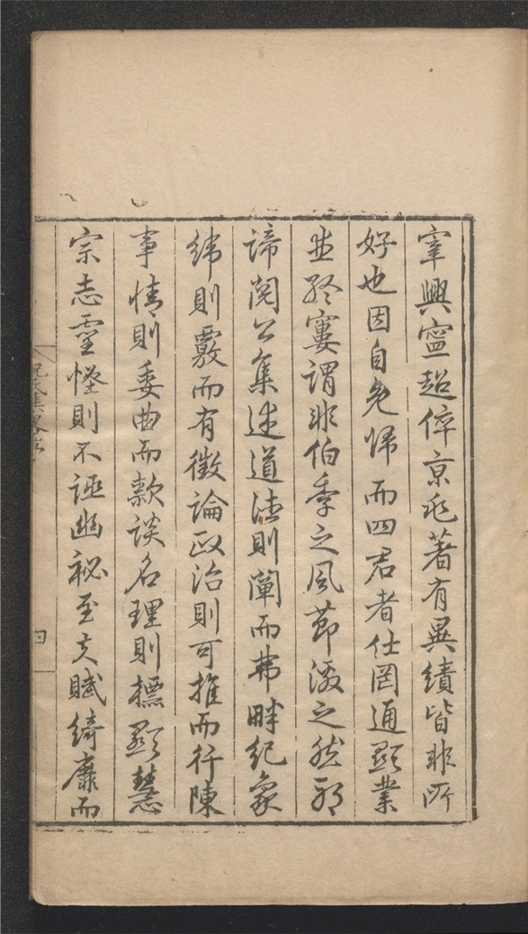 宰興寧超倅京兆著有異績皆非所
好也因自免歸而四君者仕罔通顯業
並終窶謂非伯季之風節激之然邪
諦閱公集述道法則闡而弗畔紀象
緯則覈而有徵論政治則可推而行陳
事情則委曲而款談名理則標顯慧
宗志靈怪則不誣幽祕至夫賦綺靡而
四